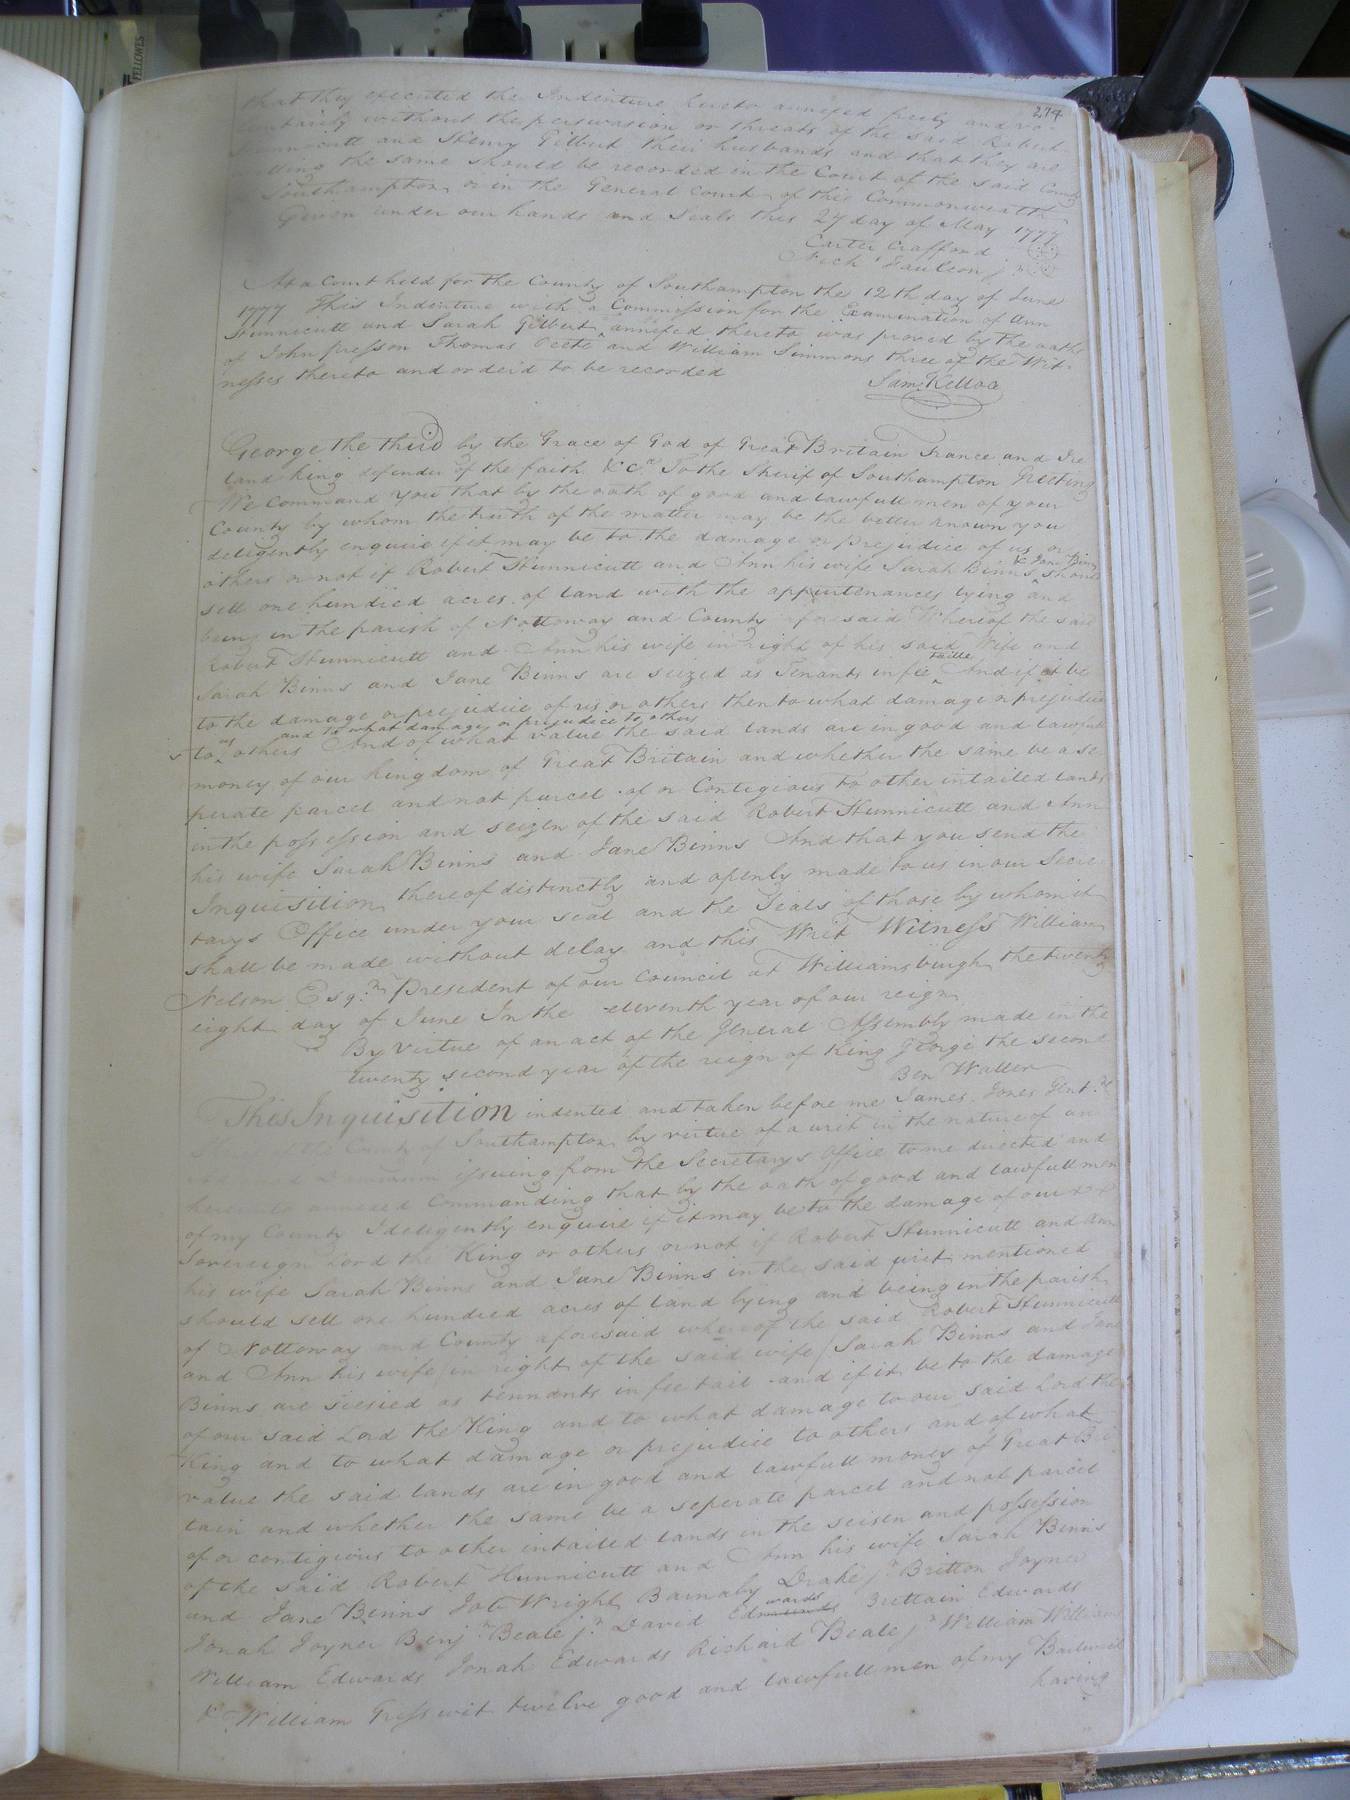 274
that they executed the Indenture hereto annexed freely and vo-
luntarily without the perswasion or threats of the said Robert
Hunnicutt and Henry Gilbert their husbands and that they are
willing the same should be recorded in the Court of the said County
Southampton or in the General Court of this Commonwealth
Given under our hands and Seals this 27 day of May 1777
Carter Crafford
Nich Faulcon jr
At a Court held for the County of Southampton the 12th day of June
1777 This Indenture with a Commission for the Examination of Ann
Hunnicutt and Sarah Gilbert annexed thereto was proved by the oaths
of John presson Thomas Peete and William Simmons three of the Wit-
nesses thereto and order'd to be recorded
Sam Kelloa
George the third by the Grace of God of Great Britain France and Ire
land king defender of the faith &ca To the Sherif of Southampton Greeting
We command you that by the oath of good and lawfull men of your
County by whom the truth of the matter may be the better known you
deligently enquire if it may be to the damage or prejudice of us or
& Jane Binns
others or not if Robert Hunnicutt and Ann his wife Sarah Binns should
sell one hundred acres of land with the appurtenances lying and
being in the parish of Nottoway and County aforesaid Whereof the said
Robert Hunnicutt and Ann his wife in right of his said Wife and
taille
Sarah Binns and Jane Binns are seized as Tenants in fee And if it be
to the damage or prejudice of us or others then to what damage or prejudice
and to what damage or prejudice to others
us
to others And of what value the said lands are in good and lawfull
money of our kingdom of Great Britain and whether the same be a se
perate parcel and not parcel of or Contigious to other intailed lands
in the possession and seizen of the said Robert Hunnicutt and Ann
his wife Sarah Binns and Jane Binns And that you send the
Inquisition thereof distinctly and openly made to us in our Secre
tarys Office under your seal and the Seals of those by whom it
shall be made without delay and this Writ Witness William
Nelson Esqr President of our Council at Williamsburgh the twenty
eight day of June In the eleventh year of our reign
By virtue of an act of the General Assembly made in the
twenty second year of the reign of King George the second
Ben Waller
This Inquisition indented and taken before me James Jones Gent
County of Southampton by virtue of a writ in the nature of an
issuing from the Secretarys Office to me directed and
hereto annexed Commanding that by the oath of good and lawfull men
of my County I deligently enquire if it may be to the damage of our
Sovereign Lord the King or others or not if Robert Hunnicutt and Ann
his wife Sarah Binns and Jane Binns in the said writ mentioned
should sell one hundred acres of land lying and being in the parish
of Nottoway and County aforesaid whereof the said Robert Hunnicutt
and Ann his wife (in right of the said wife) Sarah Binns and Jane
Binns are siesied as tennants in fee tail and if it be to the damage
of our said Lord the King and to what damage to our said Lord the
King and to what damage or prejudice to others and of what
value the said lands are in good and lawfull money of Great Bri
tain and whether the same be a seperate parcel and not parcel
of or contigious to other intailed lands in the seisen and possession
of the said Robert Hunnicutt and Ann his wife Sarah Binns
and Jane Binns Job Wright Barnaby Drake jr Britton Joyner
wards
Jonah Joyner Benj Beale jr David Ed Brittain Edwards
William Edwards Jonah Edwards Richard Beale jr William Williams
& William Gresswit twelve good and lawfull men of my Bailiwick
having